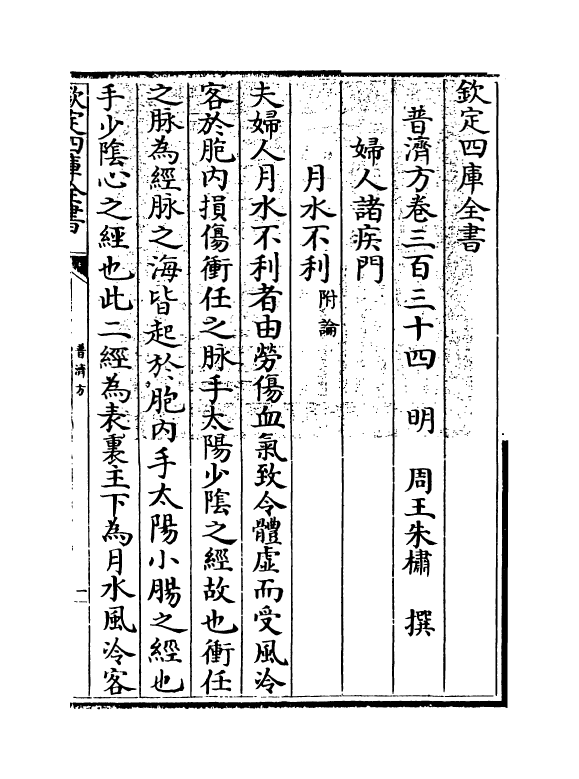 欽定四庫全書
普濟方卷三百三十四 明 周王朱橚 撰
婦人諸疾門
月水不利附論
夫婦人月水不利者由勞傷血氣致令體虛而受風冷
客於胞内損傷衝任之脉手太陽少陰之經故也衝任
之脉為經脉之海皆起於胞内手太陽小腸之經也
手少陰心之經也此二經為表裏主下為月水風冷客
欽定四庫全書
普濟方
一